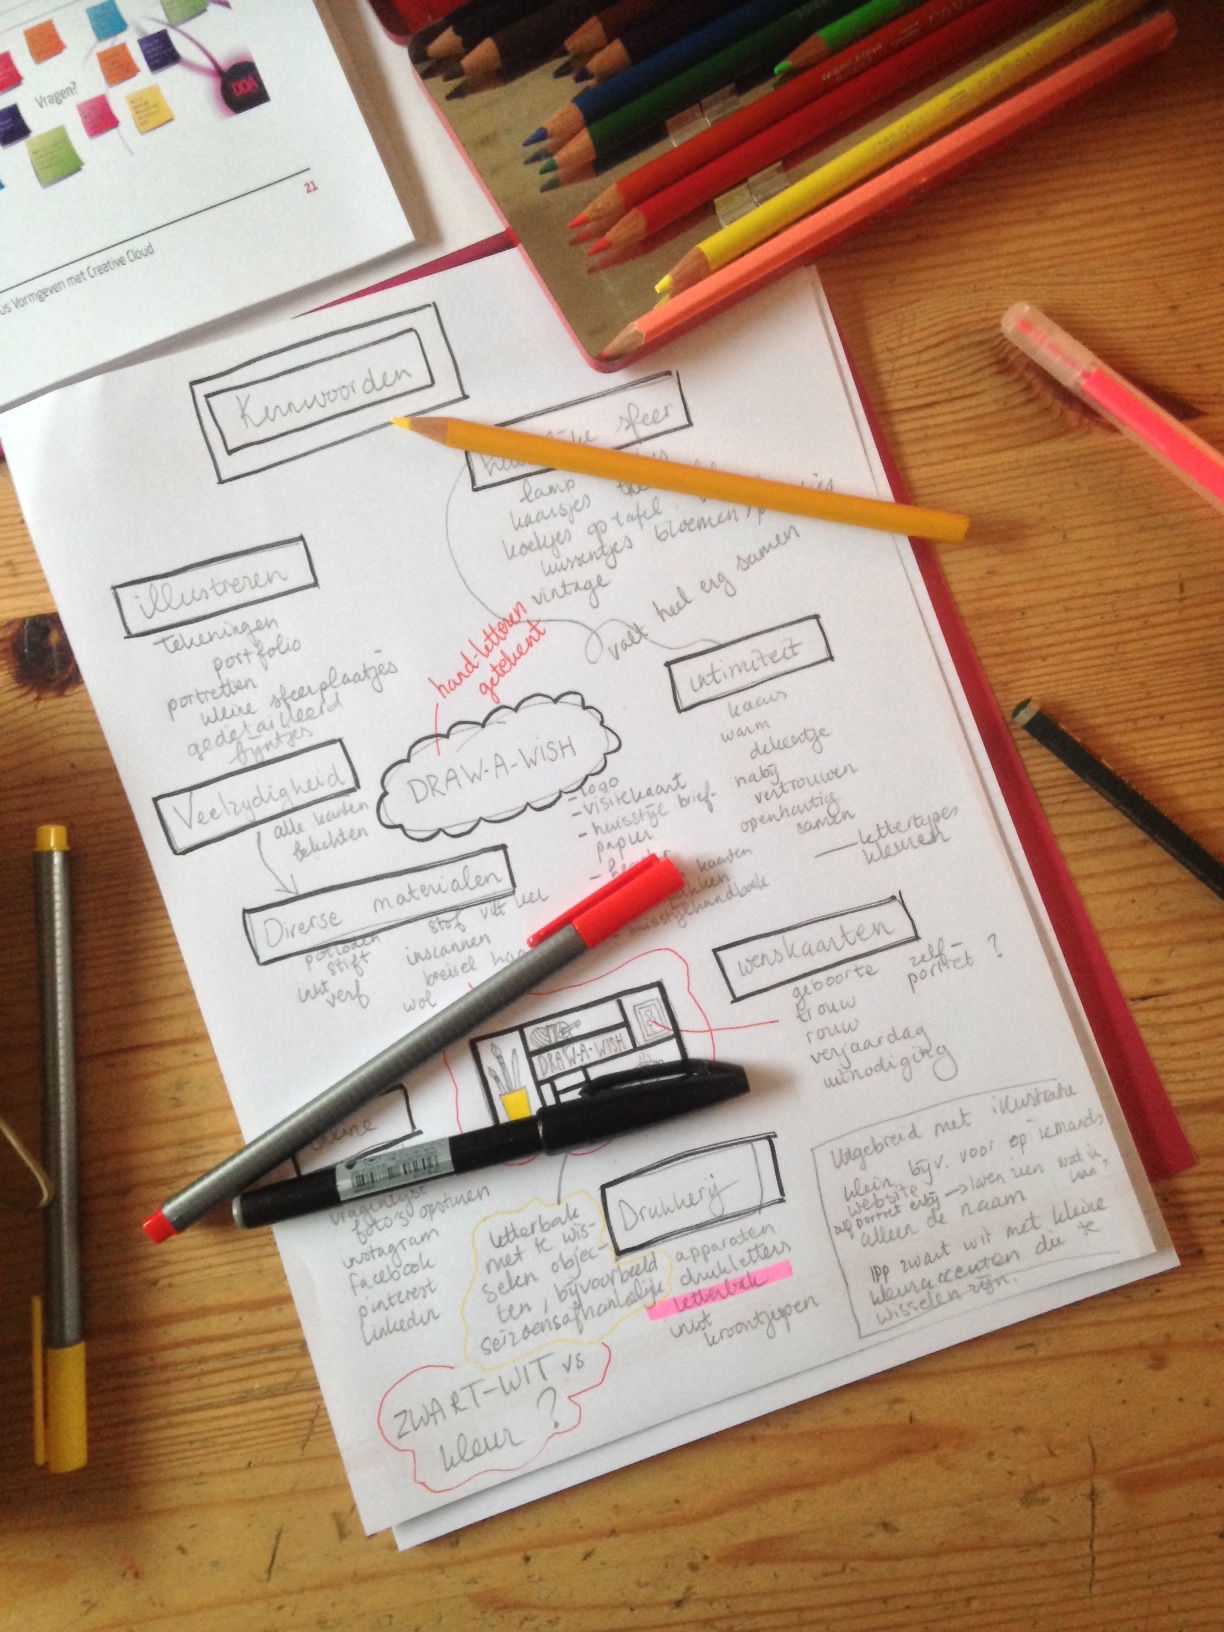 Vragen?
21
us Vormgeven met Creative Cloud
Kernwoorden
sfeer
lamp
kaarsjes
koekjes op tafel
kussentjes bloemen
vintage
valt heel erg samen
illustreren
tekeningen
portfolio
portretten
kleine sfeerplaatjes
gedetailleerd
fijntjes
hand-letteren
getekent
intimiteit
kaars
warm
dekentje
nabij
vertrouwen
openhartig
samen
lettertypes
kleuren
Veelzydigheid
alle kanten
belichten
DRAW-A-WISH
- logo
- visitekaart
- huisstijl brief-
papier
kaarten
huisstijlhandboek
Diverse materialen
potloden
stift
inkt
verf
stof vilt
inscannen
breisel
wol
wenskaarten
geboorte
trouw
rouw
verjaardag
uitnodiging
zelf-
portret ?
DRAW-A-WISH
foto's opsturen
instagram
facebook
pinterest
linkedin
letterbak
met te wis-
selen objec-
ten, bijvoorbeeld
seizoensafhankelijk
Drukkerij
apparaten
drukletters
letterbak
inkt
kroontjepen
Uitgebreid met illustratie
klein bijv. voor op iemands
website
zelfportret erbij → laten zien wat ik kan?
alleen de naam
ipp zwart wit met kleine
kleuraccenten die te
wisselen zijn.
ZWART-WIT vs
kleur ?